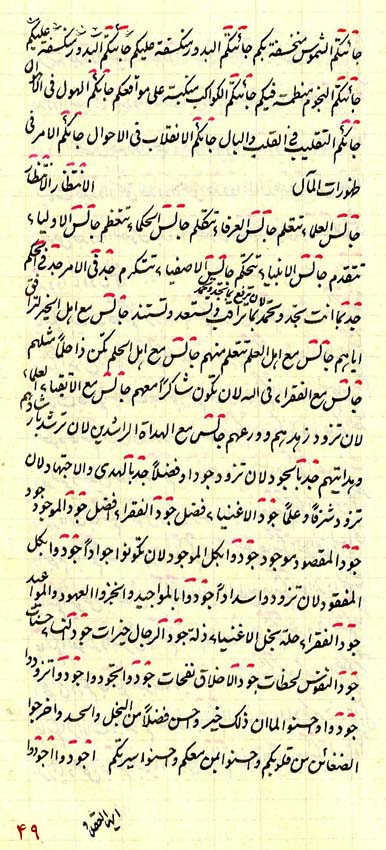 جائتكم الشموس منخسفة بكم جائتكم البدور منكسفة عليكم جائتكم البدور منكسفة عليكم
جائتكم النجوم منطمسة فيكم جائتكم الكواكب منكبتة على مواقعكم جائكم الهول فى الآمال
جائكم التقليب فى القلب والبال جائكم الانقلاب فى الاحوال جائكم الامر فى
طورات المآل الانتظار الانتظار
جالس العلماء تتعلم جالس العرفاء جالس الحكماء تتعظم جالس الاولياء
تتقدم جالس الانبياء جالس الاصفياء تتكرم جد فى الامر جد فى الحكم
جد كما انت تجد وتستعد وتستند جالس مع اهل الخير
اياهم جالس مع اهل العلم تتعلم منهم جالس مع اهل الحلم تكن داخلا مثلهم
جالس مع الفقراء فى الله لان تكون شاكرا معهم جالس مع الاتقياء
لان تزود زهدهم وورعهم جالس مع الهداة الراشدين لان ترشد
وهدايتهم جد بالجود لان تزود جودا وفضلا جد بالهدى والاجتهاد لان
تزود شرفا وعلما جود الاغنياء فضل جود الفقراء افضل جود الموجود جود
جود المقصود موجود جودوا بكل الموجود لان تكونوا اجوادا جودوا بكل
المفقود لان تزودوا سدادا جودوا بالمواجيد وانجزوا العهود والمواعيد
جود الفقراء حلة بخل الاغنياء ذلة جود الرجال خيرات جود حسنات
جود النفوس لحظات جود الاخلاق نفحات جودوا تجودوا جودوا تزودوا
جودوا واحسنوا ان ذلك خير واحسن فضلا من البخل والحسد واخرجوا
الضغائن من قلوبكم واحسنوا لمن معكم واحسنوا سيرتكم اجودوا اجودوا
ايها
٤٩